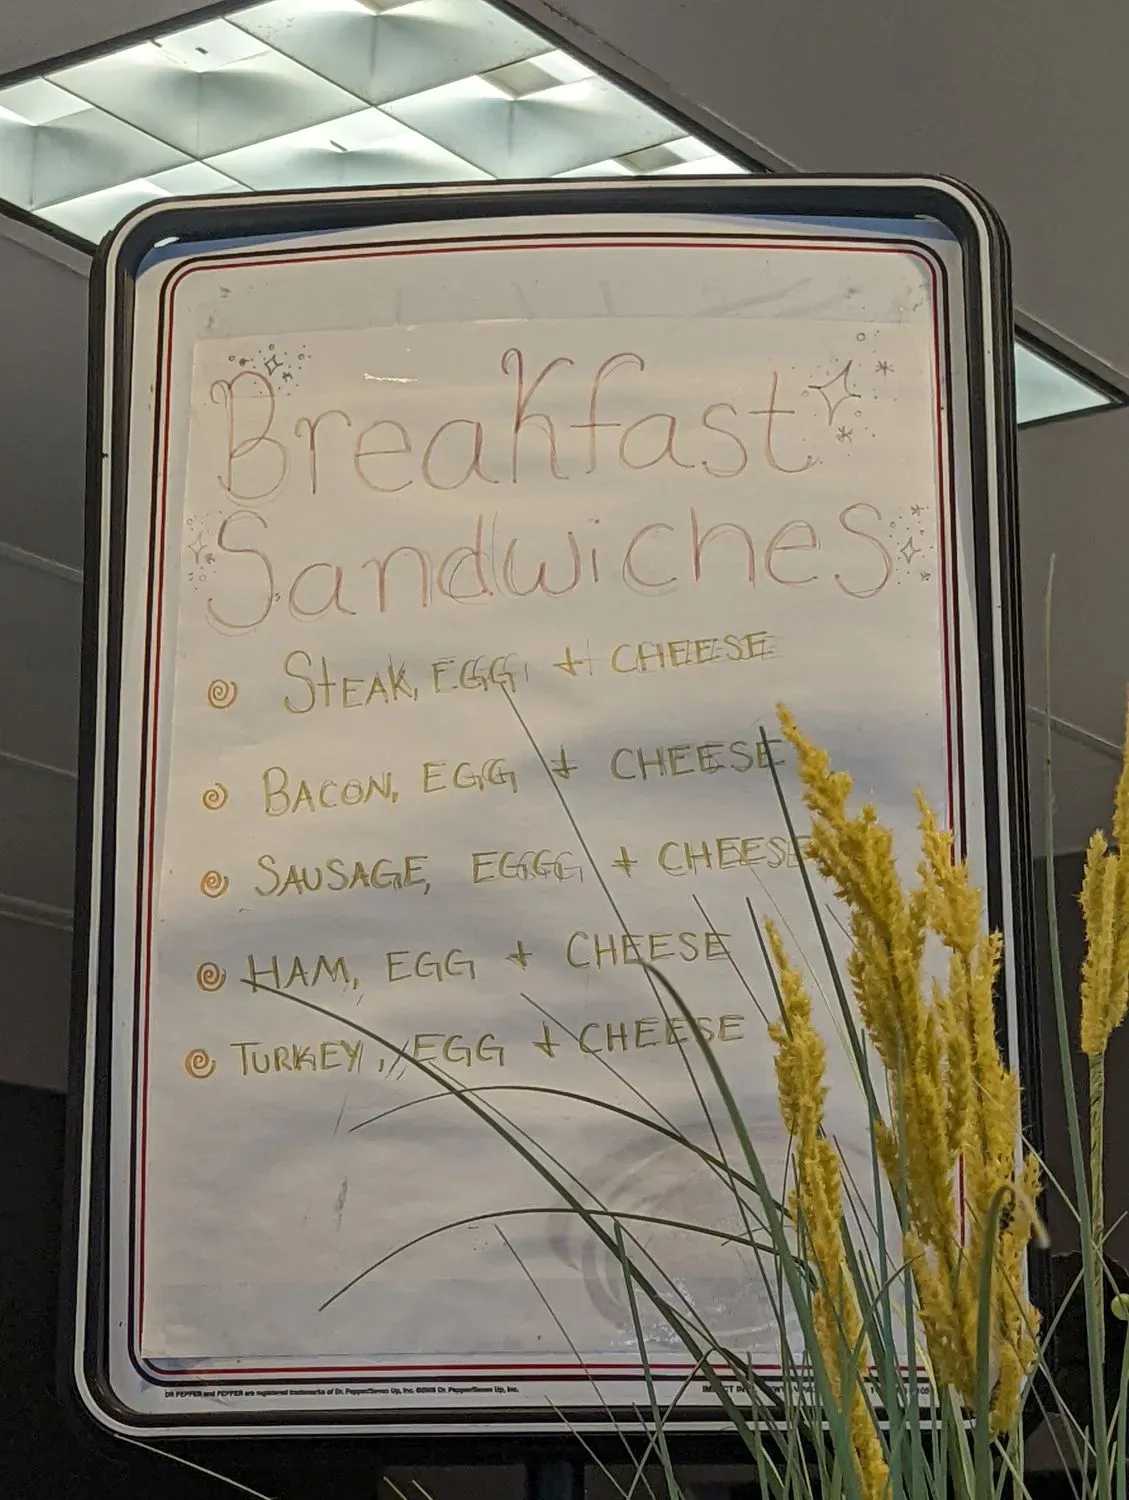 Breakfast
Sandwiches
STEAK, EGG + CHEESE
BACON, EGG + CHEESE
SAUSAGE, EGGG + CHEESE
HAM, EGG + CHEESE
TURKEY, EGG + CHEESE
DR PEPPER and PEPPER are registered trademarks of Dr. Pepper/Seven Up, Inc. ©2009 Dr. Pepper/Seven Up, Inc.